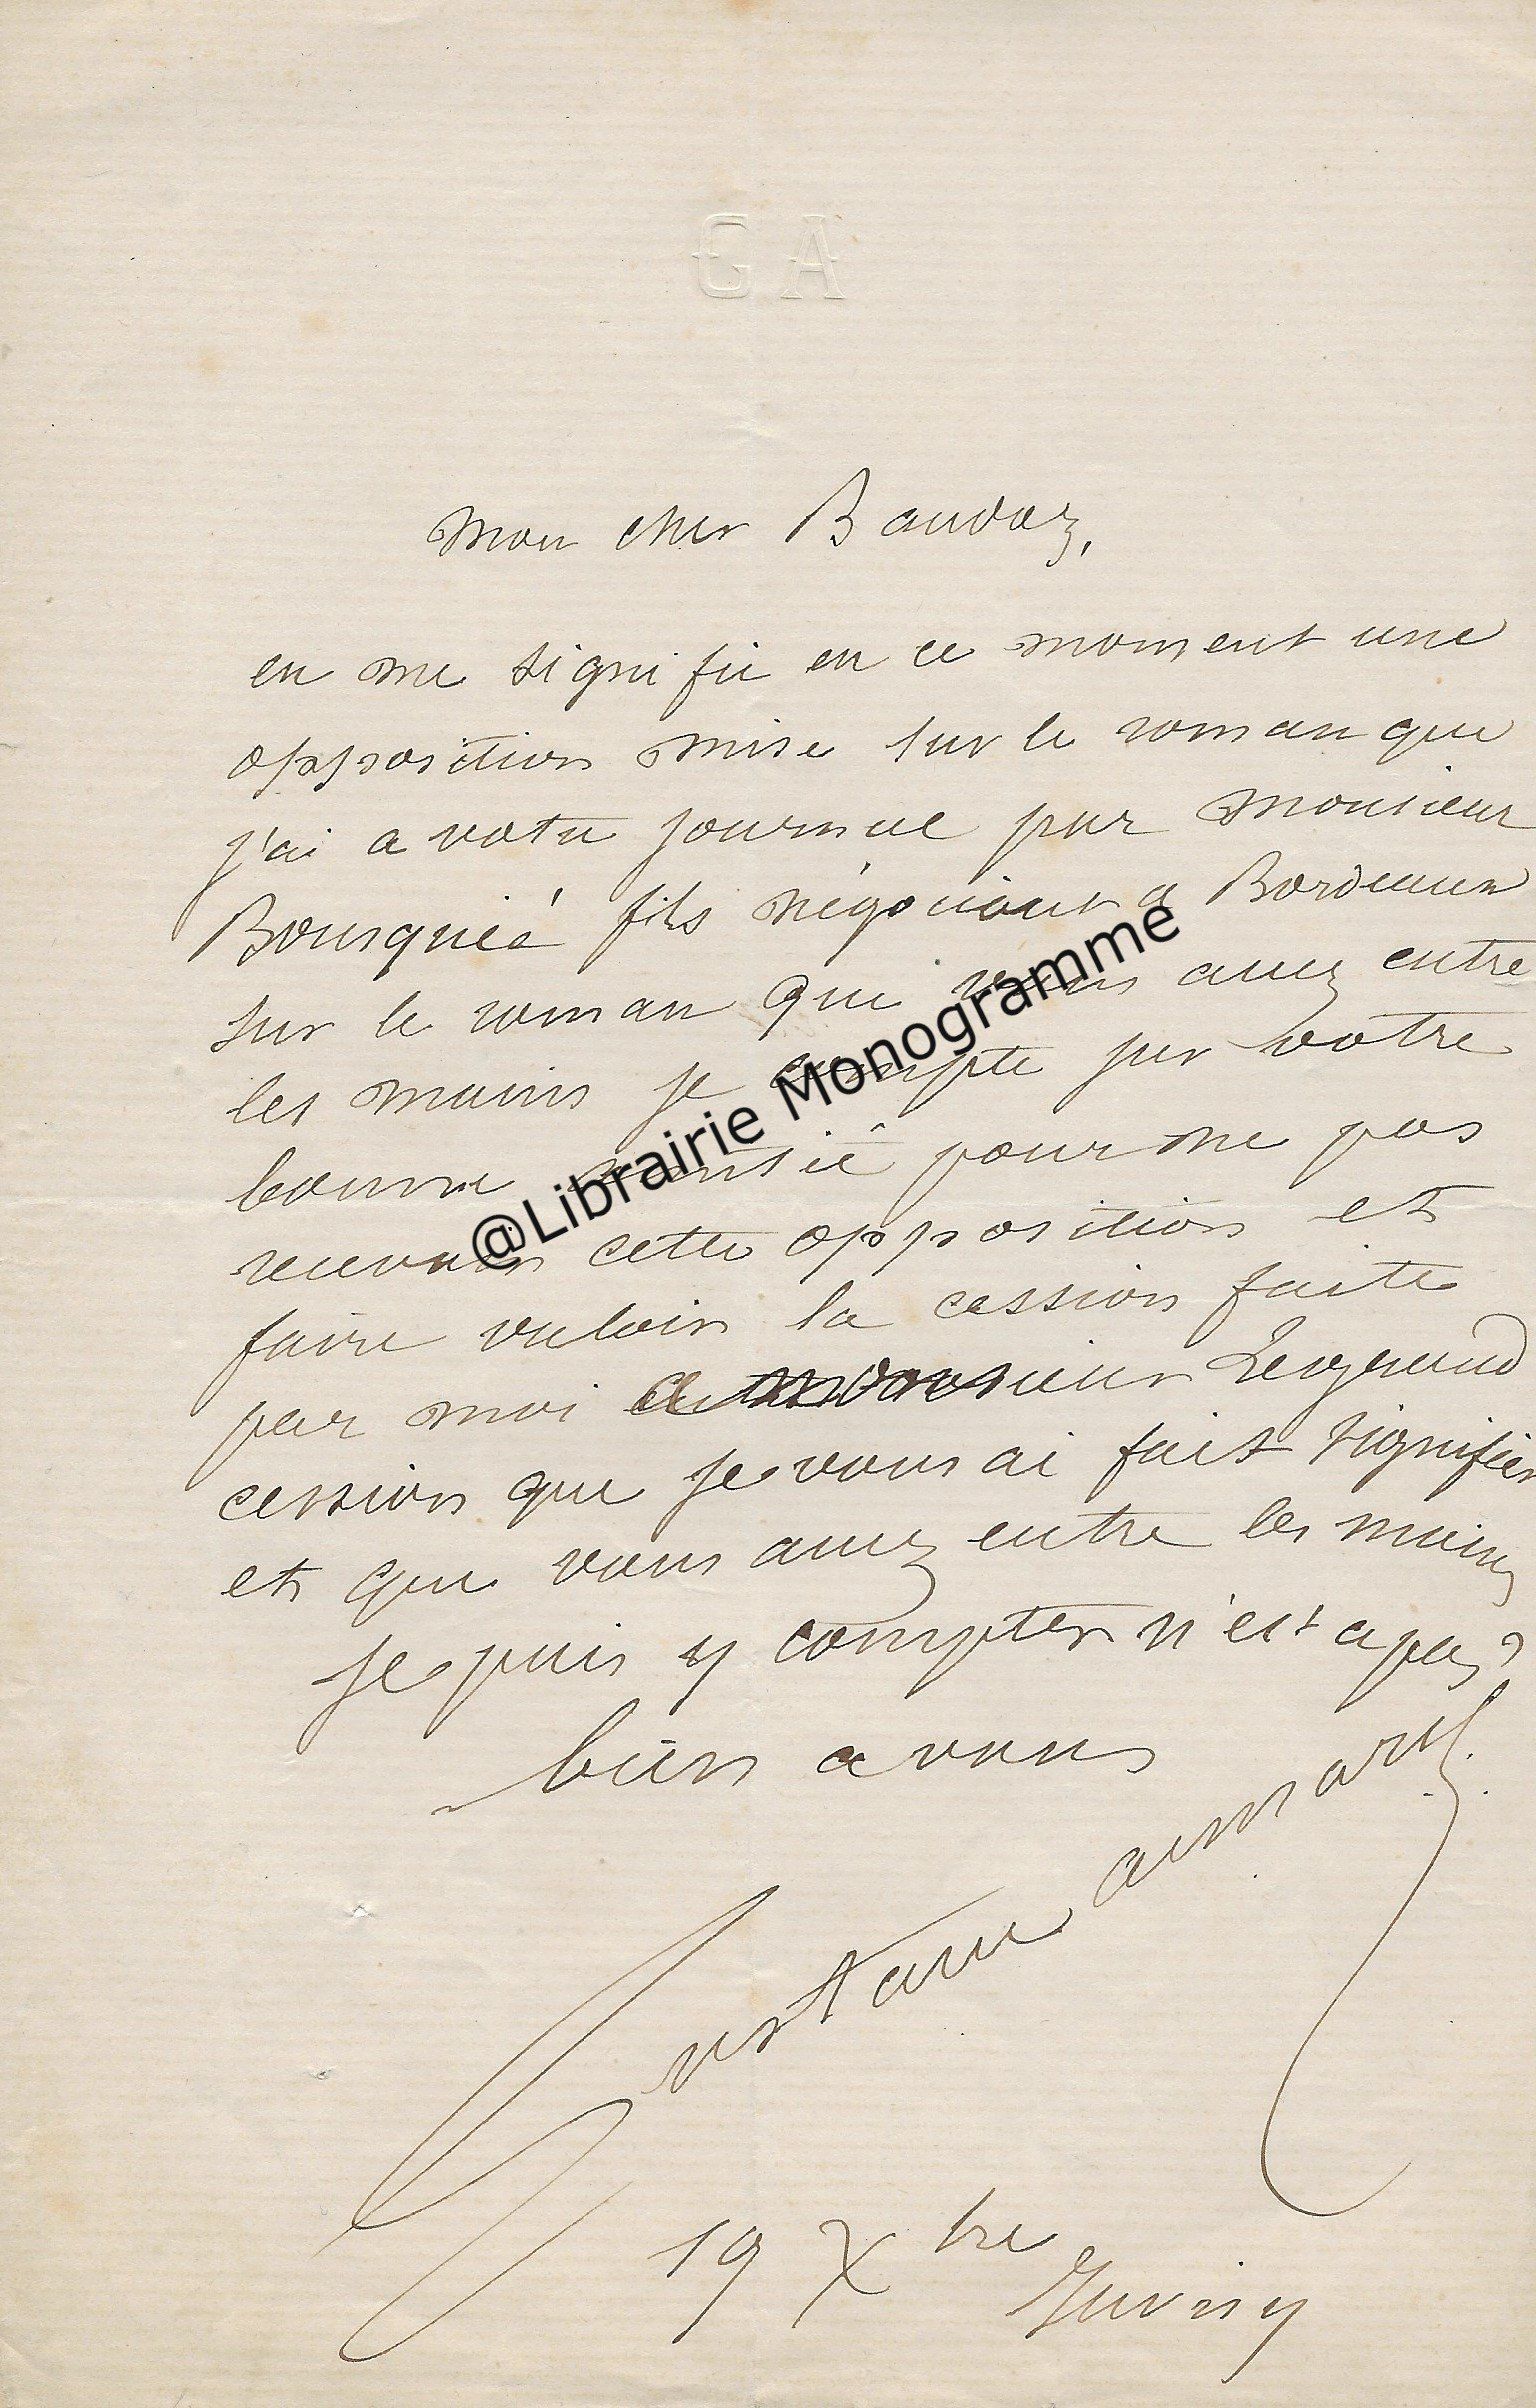 GA
Mon cher Baudoz,
en me signifie en ce moment une
opposition mise sur le roman que
j'ai a votre journal par Monsieur
Bousquié fils négociant a Bordeaux
sur le roman que vous avez entre
les mains je compte sur votre
bonne amitié pour ne pas
recevoir cette opposition et
faire valoir la cession faite
par moi a monsieur Legrand
cession que je vous ai fait signifier
et que vous avez entre les mains
je puis y compter n'est a pas?
bien a vous
Gustave aimard
19 Xbre
Juvisy
@Librairie Monogramme